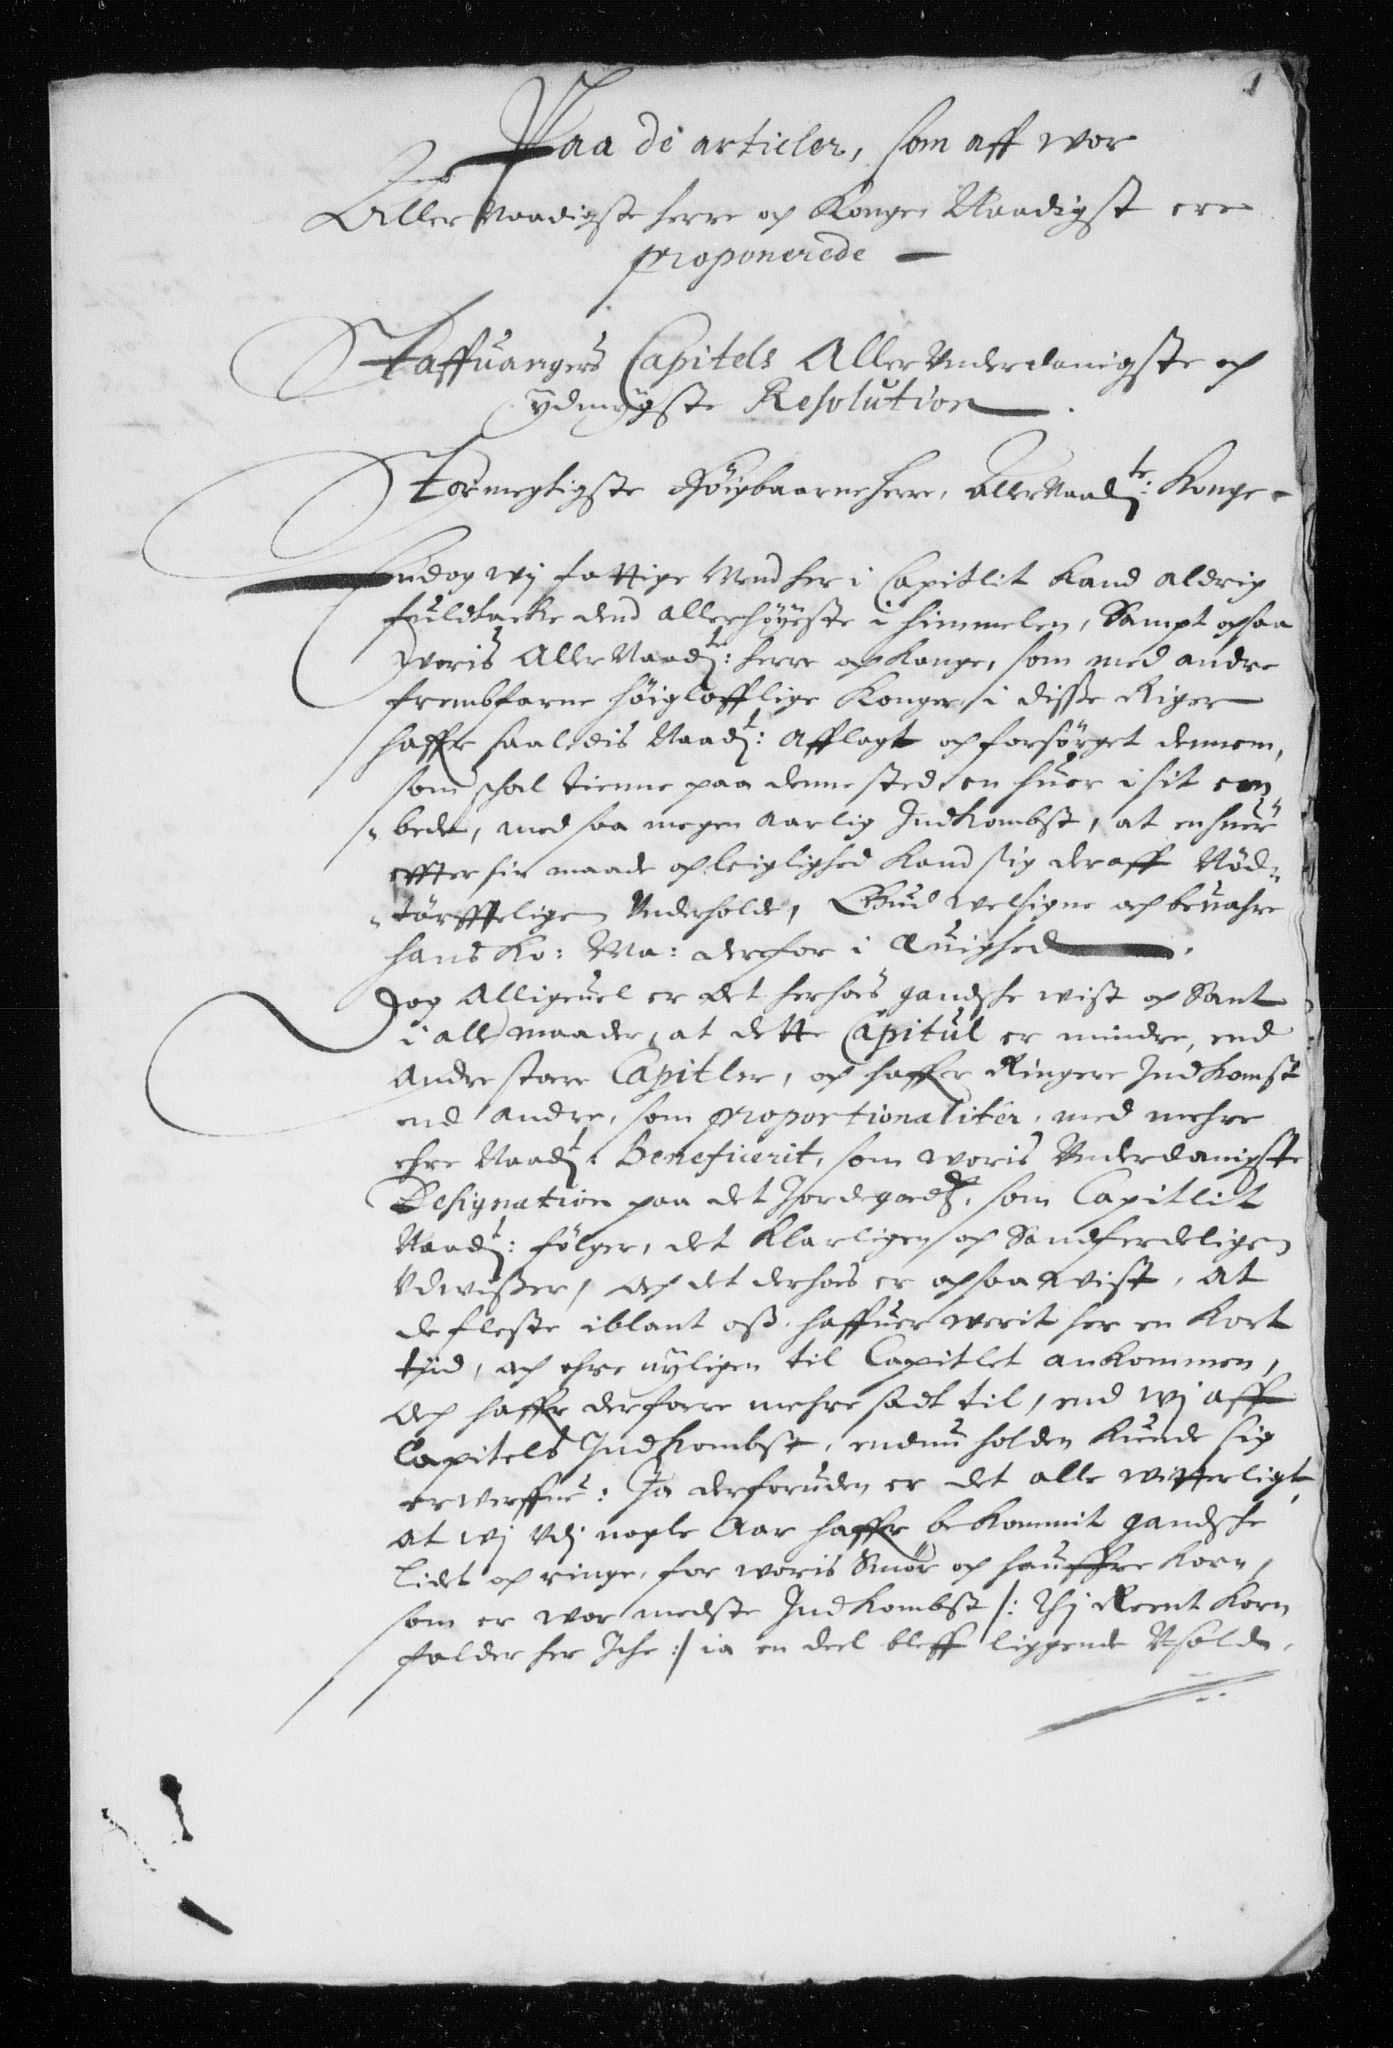 1
Paa de articler, som aff wor
Aller Naadigste herre och Konge Naadigst ere
proponerede
Staffuangers Capitels Aller Underdanigste och
ydmygste Resolution.
Stormegtigste Høigbaarne Herre, Aller Naadte: Konge
Endog wj fattige Mend her i Capitlit kand aldrig
fuldtacke dend allerhøyeste i himmelen, Sampt ochsaa
Woris Aller Naadte: herre och Konge, som med andre
frembfarne høiglofflige Konger i disse Riger
haffr saaledis Naadt: Afflagt och forsørget dennem,
som schal tienne paa denne sted, en huer i sit em,,
,,bede, med saa megen Aarlig Indkombst, at en huer
effter sin maade och leiglighed kand sig der aff Nød,,
,,tørffteligen Underholde, Gud welsigne och beuahre
hans Ko: Ma: derfor i Æuighed.
Dog Alligeuel er det herhos gandsche wist och Sant
i alle maader, at dette Capitul er mindre, end
Andre store Capitler, och haffer Ringere Indkomst
end Andre, som proportionaliter, med mehre
ehre Naadt: Beneficerit, som woris Underdanigste
Designation paa det Jordegoeds, som Capitlit
Naadt: følger, det klarligen och Sandferdeligen
Udwisser, och det derhos er ochsaa wist, at
de fleste iblant oss, haffuer werit her en kort
tiid, och ehre nyligen til Capitlet ankommen,
och haffr derfore mehre sadt til, end wj aff
Capitels Indkombst, endnu holden kunde sig
erwerffue: Ja derforuden er det alle witterligt,
at wj Udj nogle Aar haffr bekommit gandsche
lidt och ringe, for woris Smør och hauffre korn,
som er wor meste Indkombst /: Thj Reent Korn
falder her Iche :/ ia en deel bleff liggende Usolde,